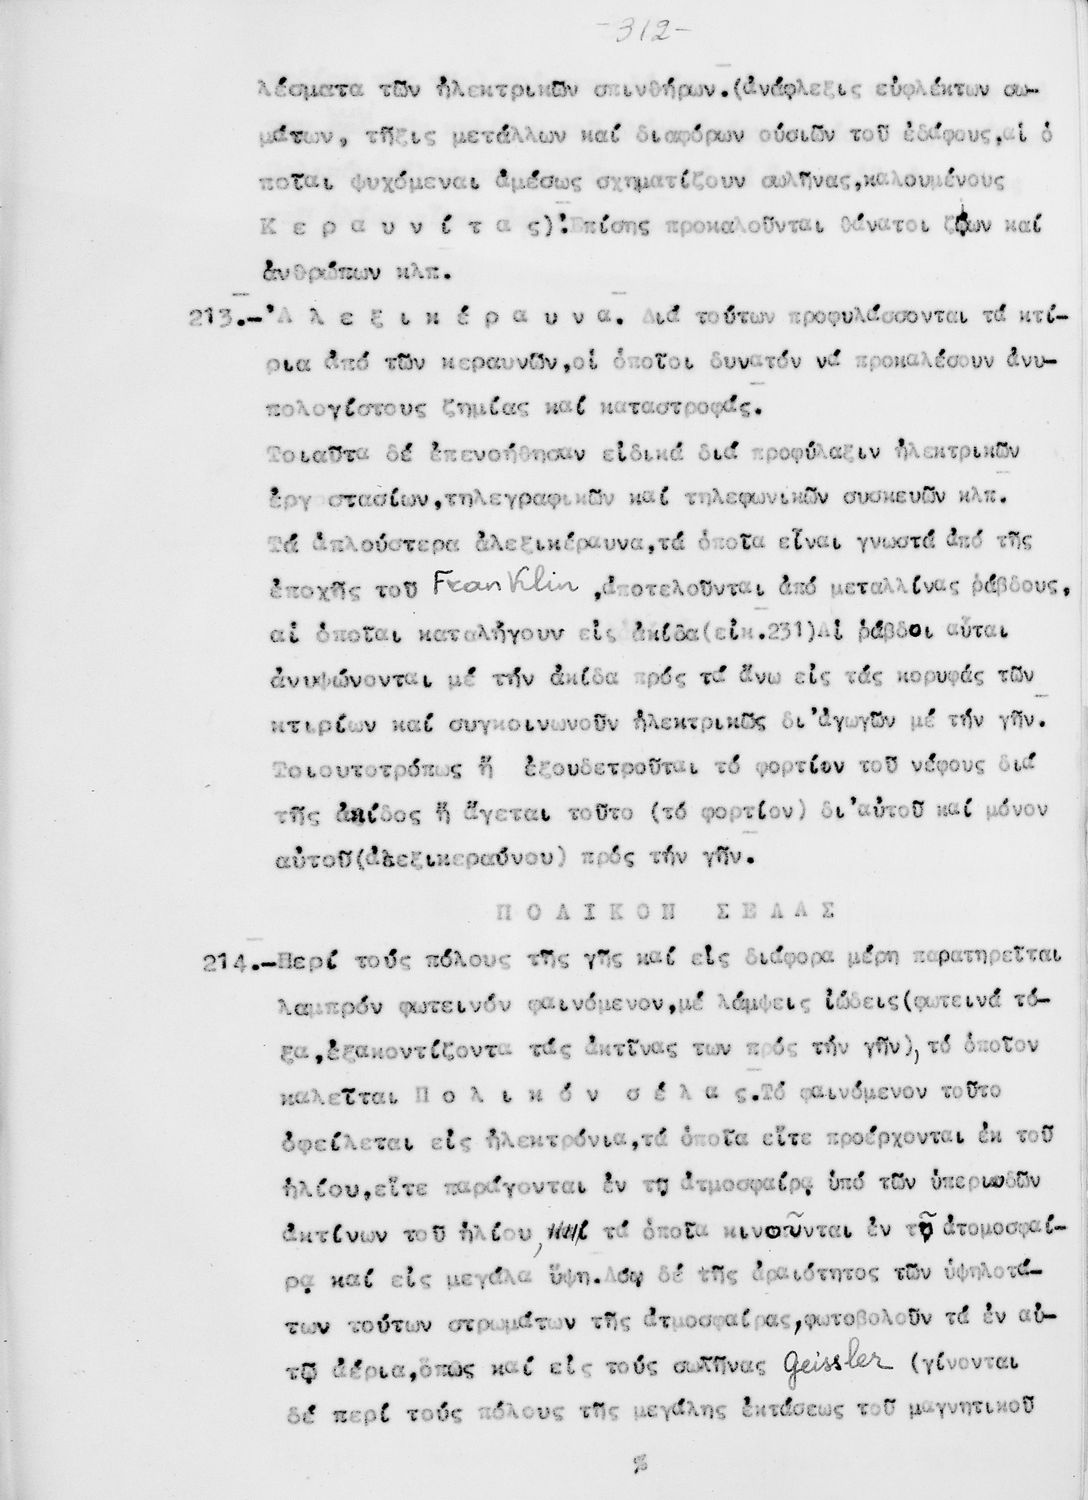 -312-
λέσματα τῶν ἠλεκτρικῶν σπινθήρων.(ἀνάφλεξις εὐφλέκτων σω-
μάτων, τῆξις μετάλλων καί διαφόρων οὐσιῶν τοῦ ἐδάφους,αἱ ὁ
ποῖαι ψυχόμεναι ἀμέσως σχηματίζουν σωλῆνας,καλουμένους
Κ ε ρ α υ ν ί τ α ς)!Ἐπίσης προκαλοῦνται θάνατοι ζώων καί
ἀνθρώπων κλπ.
213.-'Α λ ε ξ ι κ έ ρ α υ ν α. Διά τούτων προφυλάσσονται τά κτί-
ρια ἀπό τῶν κεραυνῶν,οἱ ὁποῖοι δυνατόν νά προκαλέσουν ἀνυ-
πολογίστους ζημίας καί καταστροφάς.
Τοιαῦτα δέ ἐπενοήθησαν εἰδικά διά προφύλαξιν ἠλεκτρικῶν
ἐργοστασίων,τηλεγραφικῶν καί τηλεφωνικῶν συσκευῶν κλπ.
Τά ἁπλούστερα ἀλεξικέραυνα,τά ὁποῖα εἶναι γνωστά ἀπό τῆς
ἐποχῆς τοῦ Franklin ,ἀποτελοῦνται ἀπό μεταλλίνας ῥάβδους,
αἱ ὁποῖαι καταλήγουν εἰς ἀκίδα(εἰκ.231)Αἱ ῥάβδοι αὗται
ἀνυψώνονται μέ τήν ἀκίδα πρός τά ἄνω εἰς τάς κορυφάς τῶν
κτιρίων καί συγκοινωνοῦν ἠλεκτρικῶς δι'ἀγωγῶν μέ τήν γῆν.
Τοιουτοτρόπως ἤ ἐξουδετροῦται τό φορτίον τοῦ νέφους διά
τῆς ἀκίδος ἤ ἄγεται τοῦτο (τό φορτίον) δι'αὐτοῦ καί μόνον
αὐτοῦ(ἀλεξικεραύνου) πρός τήν γῆν.
Π Ο Λ Ι Κ Ο Ν Σ Ε Λ Α Σ
214.-Περί τούς πόλους τῆς γῆς καί εἰς διάφορα μέρη παρατηρεῖται
λαμπρόν φωτεινόν φαινόμενον,μέ λάμψεις ἰώδεις(φωτεινά τό-
ξα,ἐξακοντίζοντα τάς ἀκτῖνας των πρός τήν γῆν),τό ὁποῖον
καλεῖται Π ο λ ι κ ό ν σ έ λ α ς.Τό φαινόμενον τοῦτο
ὀφείλεται εἰς ἠλεκτρόνια,τά ὁποῖα εἴτε προέρχονται ἐκ τοῦ
ἡλίου,εἴτε παράγονται ἐν τῇ ἀτμοσφαίρᾳ ὑπό τῶν ὑπεριωδῶν
ἀκτίνων τοῦ ἡλίου, τά ὁποῖα κινοῦνται ἐν τῇ ἀτομοσφαί-
ρᾳ καί εἰς μεγάλα ὕψη.Λόγῳ δέ τῆς ἀραιότητος τῶν ὑψηλοτά-
των τούτων στρωμάτων τῆς ἀτμοσφαίρας,φωτοβολοῦν τά ἐν αὐ-
τῷ ἀέρια,ὅπως καί εἰς τούς σωλῆνας Geissler (γίνονται
δέ περί τούς πόλους τῆς μεγάλης ἐκτάσεως τοῦ μαγνητικοῦ